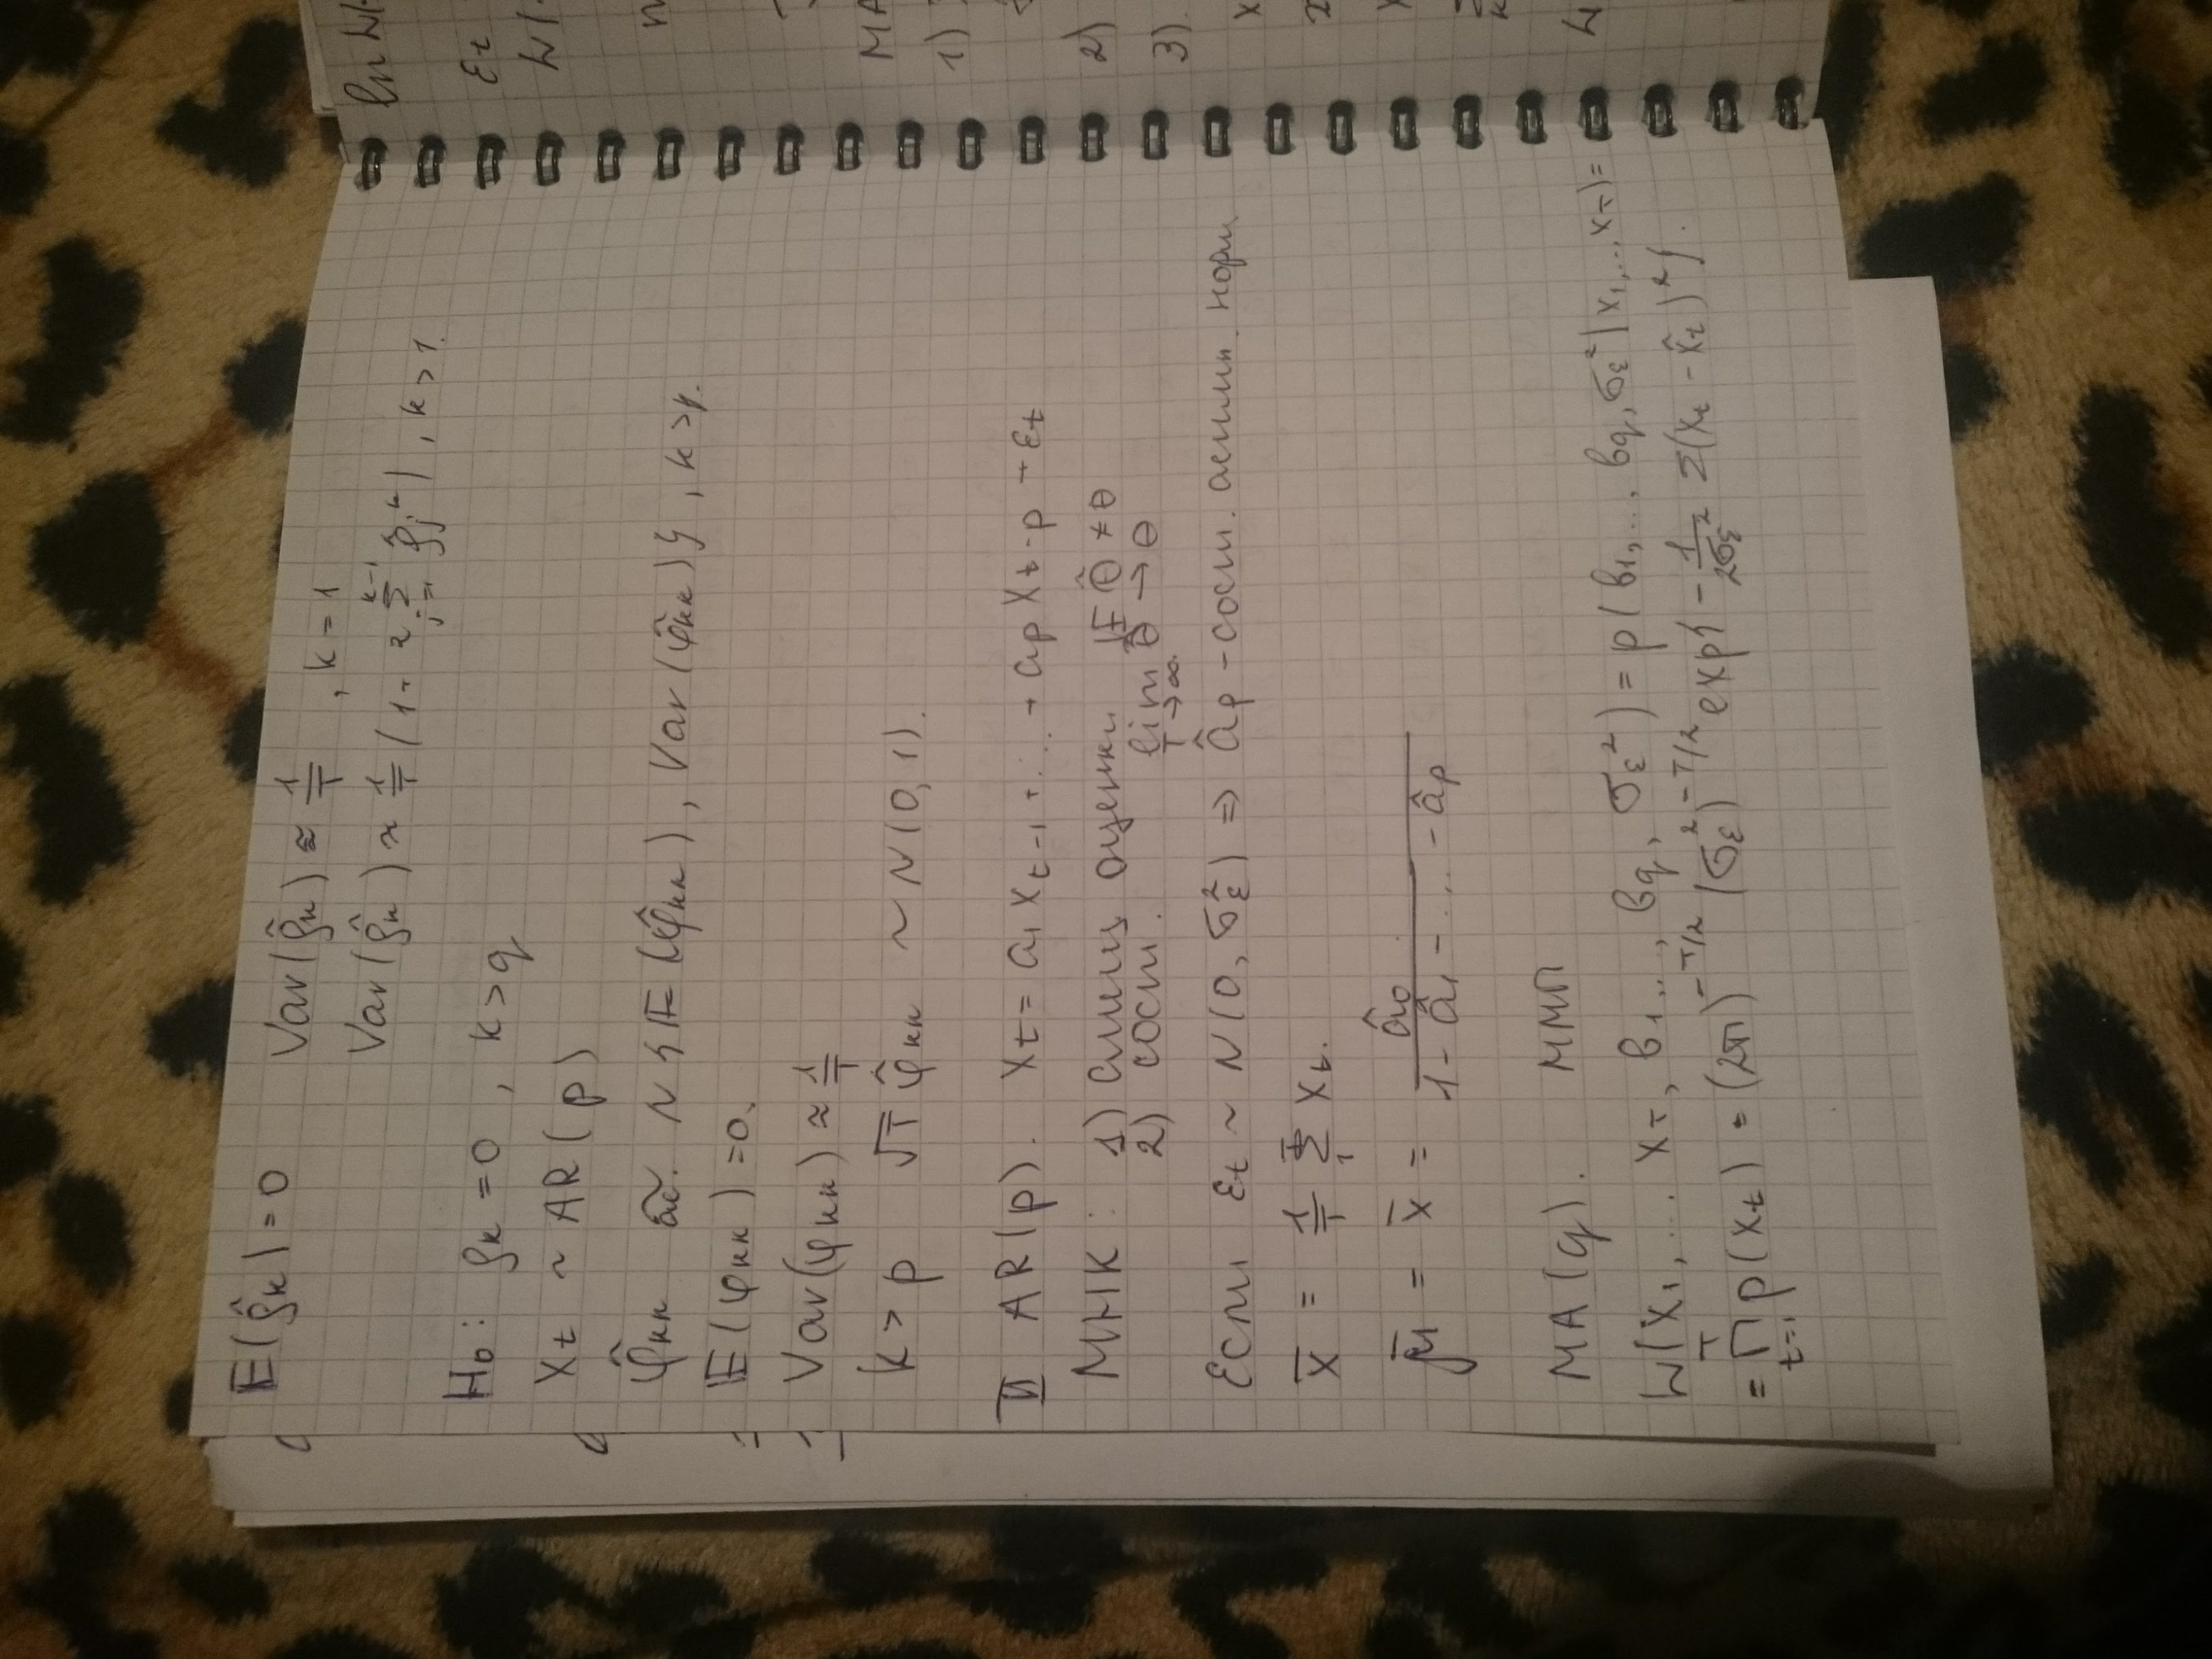 E(ρ̂ₖ) = 0   Var(ρ̂ₖ) ≈ 1/T , k = 1
Var(ρ̂ₖ) ≈ 1/T (1 + 2 Σⱼ₌₁ᵏ⁻¹ ρ̂ⱼᵏ) , k > 1.
H₀: ρₖ = 0 , k > q
Xₜ ~ AR(p)
φ̂ₖₖ ас. ~ N{E(φ̂ₖₖ), Var(φ̂ₖₖ)} , k > p.
E(φₖₖ) = 0.
Var(φₖₖ) ≈ 1/T
k > p   √T φ̂ₖₖ ~ N(0,1).
II AR(p). Xₜ = a₁Xₜ₋₁ + ... + aₚXₜ₋ₚ + εₜ
МНК: 1) смещ оценки E θ̂ ≠ θ
2) сост. lim T→∞ θ̂ → θ
Если εₜ ~ N(0, σ²_ε) ⇒ âₚ - сост. асимп. норм
X̄ = 1/T Σ₁ᵀ Xₜ.
μ̄ = X̄ = â₀ / (1 - â₁ - ... - âₚ)
MA(q).   ММП
W(X₁, ... X_T, b₁ ..., b_q, σ_ε²) = p(b₁, ... b_q, σ_ε² | x₁, ... x_T) =
= Πₜ₌₁ᵀ p(xₜ) = (2π)^(-T/2) (σ_ε²)^(-T/2) exp{ - 1/(2σ_ε²) Σ(xₜ - x̂ₜ)² }.
ln W(
εₜ
W(
MA
1)
2)
3).